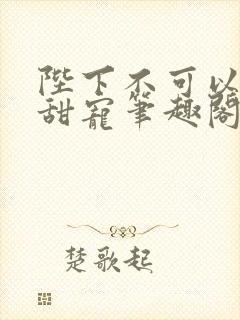 陛下不可以
甜宠笔趣阁
楚歌起